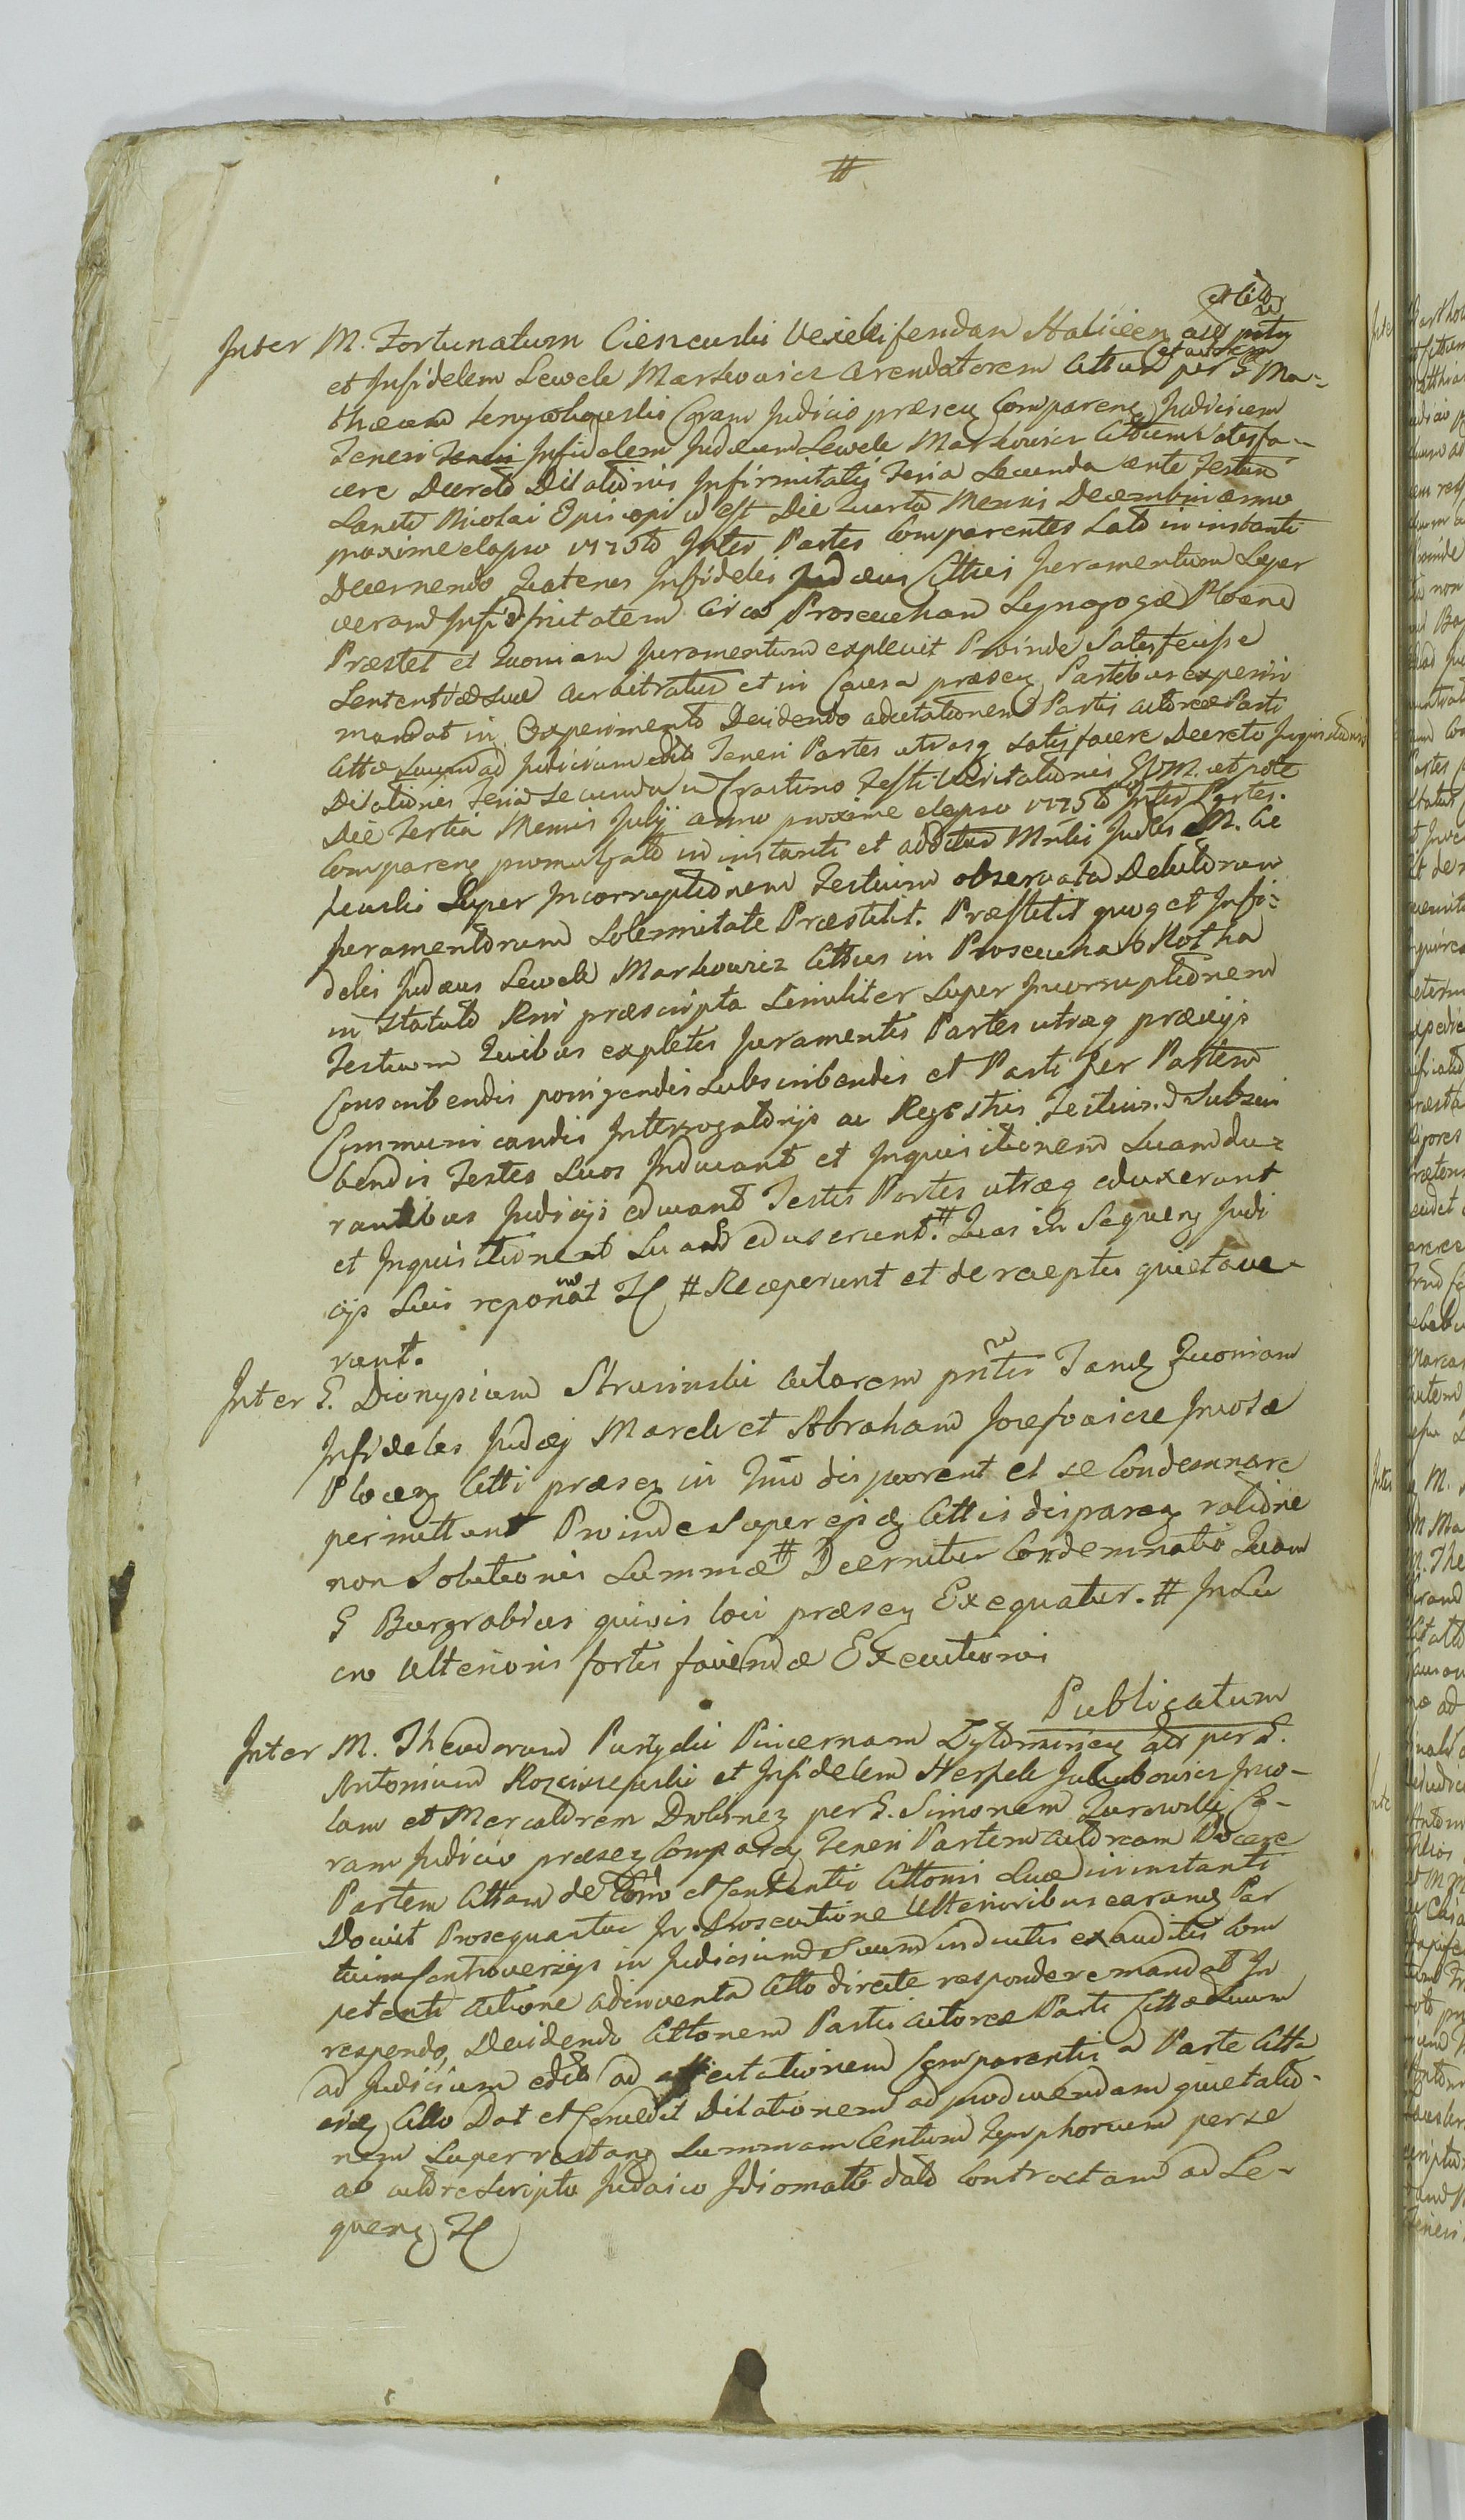 #
et Citt
Inter M. Fortunatum Ciencuski Vexeliferidam Halicien act
et actorem
et Infidelem Lewek Markowicz Arendatorem Cittum per G Ma-
thæum Coram Judicio præsen Comparen Judicium
Teneri Teneri Infidelem Judæum Lewek Markowicz Cittum Satisfa-
cere Decreto Dilationis Infirmitatis Feria Secunda ante Festum
Sancti Nicolai Episcopi id est Die Quarta Mensis Decembris anno
proxime elapso 1775to Inter Partes Comparentes Lato in instanti
Decernendo Quatenus Infidelis Judæus Cittus Juramentum Super
veram Infirmitatem Circa Proseucham Synagogæ Plocen
Præstet et Quoniam Juramentum explevit Proinde Satisfecisse
Sententiæ Suæ Arbitratur et in Causa præsen Partibus experiri
mandat in Experimento Decidendo adcitationem Partis actoreæ Parti
Cittæ Suum ad Judicium edito Teneri Partes utrasq satisfacere Decreto Inquisitionis
Dilationis Feria Secunda in Crastino Festi Visitationis BVM. ut pote
Die Tertia Mensis Julij anno proxime elapso 1775to Inter Partes
Comparen promulgato in instanti et additus Mnlis Judlis M. Cie
Super Incorruptionem Testium observata Debitorum
Juramentorum Solennitate Præstitit. Præstitit quoq et Infi-
delis Judæus Lewek Markowicz Cittus in Proseucha Rotha
in Statuto Rni præscripta Similiter Super Incorruptionem
Testium Quibus expletis Juramentis Partes utræq prævijs
Conscribendis porrigendis Subscribendis et Parti per Partem
Communicandis Interrogatorijs ac Regestris Testium Subscri
bendis Testes Suos Inducant et Inquisitionem Suam du-
rantibus Judicijs educant Testes Partes utræq eduxerunt
et Inquisitionem Suam eduxerunt. # Quas in Sequen Judi
cijs Suis reponant # Receperunt et de receptis quietave-
runt.
Inter G. Dionysium Strusinski Actorem Tandq Quoniam
Infideles Judæi Marek et Abraham Josefowicze Incolæ
Plocen Citti præsen in Tmo disparent et se Condemnare
permittunt Proinde Super ejsdq Cittis disparen ratione
non Solutionis Summæ # Decernitur Condemnatio Quam
G Burgrabius quivis loci præsen Exequatur. # In Lu
cro Ulterioris fortis faciendæ Executionis
Publicatum
Inter M. Theodorum Pincernam act per G.
Antonium et Infidelem Herszek Jakubowicz Inco-
lam et Mercatorem Dobrinen per G. Simonem Co-
ram Judicio præsen Comparen Teneri Partem Actoream Docere
Partem Cittam de Tmo et Contentis Cittonis Suæ in instanti
Docuit Prosequantur In Prosecutione Ulterioribus earundq Par
tium Controversijs in Judicium Suum inductis exauditis Com
petenti Actione adinventa Citto directe respondere mandat In
respondo, Decidendo Cittonem Partis Actoreæ Parti Cittæ Suum
ad Judicium edito ad affectationem Comparentis a Parte Citta
Citto Dat et Concedit Dilationem ad producendam quietatio-
nem Super restan Summam Centum Tynphorum per se
ab actore Scripto Judaico Idiomate dato Contractam ad Se-
quen